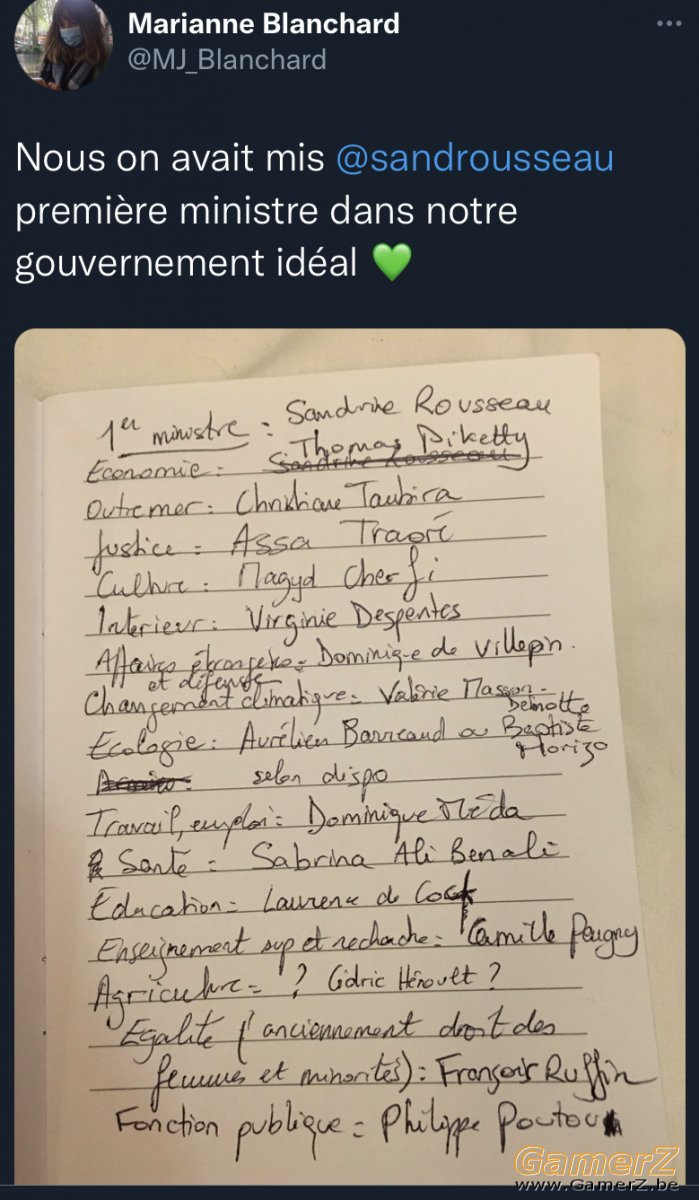 Marianne Blanchard
@MJ_Blanchard
Nous on avait mis @sandrousseau
première ministre dans notre
gouvernement idéal 💚
1er ministre : Sandrine Rousseau
Thomas Piketty
Economie : Sandrine Rousseau
Outremer : Christiane Taubira
Justice : Assa Traoré
Culture : Magyd Cherfi
Intérieur : Virginie Despentes
Affaires étrangères = Dominique de Villepin.
et défense
Changement climatique = Valérie Masson-
Delmotte
Ecologie : Aurélien Barreaud ou Baptiste
Morizo
selon dispo
Travail, emploi = Dominique Méda
Santé = Sabrina Ali Benali
Éducation = Laurence de Cock
Enseignement sup et recherche = Camille Peugny
Agriculture = ? Cédric Héroult ?
Egalité (anciennement droit des
femmes et minorités) : François Ruffin
Fonction publique = Philippe Poutou
GamerZ
www.GamerZ.be